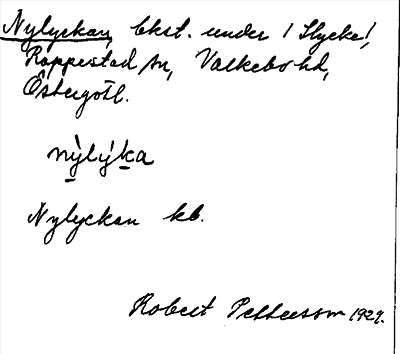 Nylyckan, bkst. under 1 Stycke!,
Rappestad sn, Valkebo hd,
Östergötl.
nỳlýka
Nylyckan kb.
Robert Pettersson 1929.